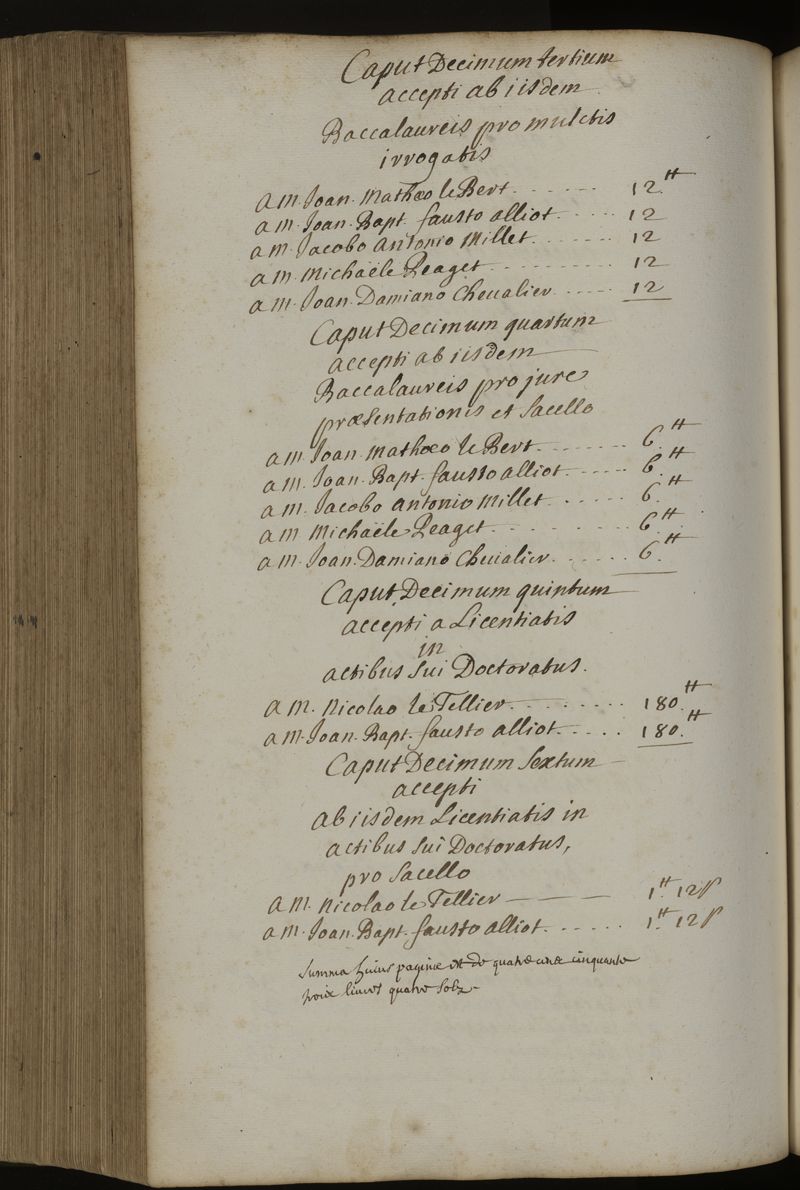 Caput Decimum tertium
accepti ab iisdem
Baccalaureis pro mulctis
irrogatis
a M. Joan. Mathæo le Bert. - - - - - - 12.tt
a M. Joan. Bapt. fausto alliot - - - - - 12
a M. Jacobo Antonio Millet. - - - - - - 12
a M. Michaële Peaget - - - - - - - - - 12
a M. Joan. Damiano Chevalier - - - - - 12
Caput Decimum quartum
accepti ab iisdem
Baccalaureis pro jure
præsentationis et Sacello
a M. Joan. Mathæo le Bert. - - - - - - - 6.tt
a M. Joan. Bapt. fausto alliot - - - - - 6.tt
a M. Jacobo Antonio Millet - - - - - - 6.tt
a M. Michaële Peaget - - - - - - - - - 6.tt
a M. Joan. Damiano Chevalier. - - - - - 6.tt
Caput Decimum quintum
accepti a Licentiatis
in
actibus sui Doctoratus.
a M. Nicolao le Tellier. - - - - - - - - 180.tt
a M. Joan. Bapt. fausto alliot - - - - - 180.tt
Caput Decimum Sextum
accepti
ab iisdem Licentiatis in
actibus sui Doctoratus,
pro Sacello
a M. Nicolao le Tellier — — — 1.tt 12 s
a M. Joan. Bapt. fausto alliot. - - - - - 1.tt 12 s
Summa huius paginæ est de quatre cent cinquante
trois livres quatre solz